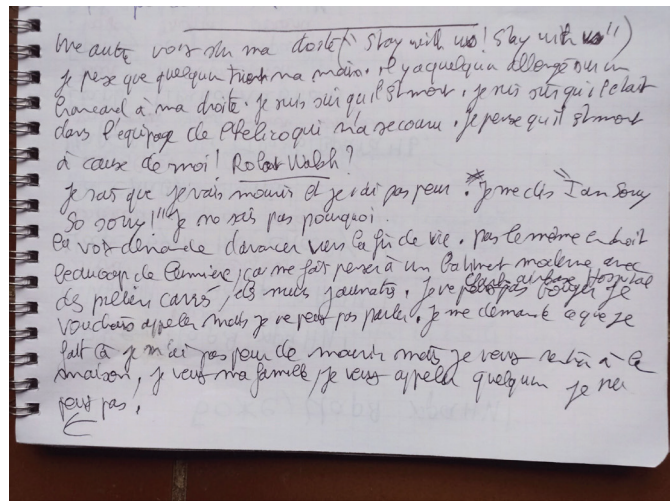 Une autre voix sur ma droite (" Stay with us! Stay with us")
je pense que quelqu'un tient ma main. il y a quelqu'un allongé sur un
brancard à ma droite. je suis sûr qu'il est mort. je suis sûr qu'il était
dans l'équipage de l'hélico qui m'a secouru. je pense qu'il est mort
à cause de moi! Robert Walsh?
je sais que je vais mourir et je n'ai pas peur. je me dis "I am sorry
so sorry!" je ne sais pas pourquoi.
la voix demande d'avancer vers la fin de vie. pas le même endroit
beaucoup de lumière, ça me fait penser à un bâtiment moderne avec
des piliers carrés, des murs jaunâtres. je ne peux pas bouger je
airbase Hospital
voudrais appeler mais je ne peux pas parler. je me demande ce que je
fait là je n'ai pas peur de mourir mais je veux rentrer à la
maison, je veux ma famille, je veux appeler quelqu'un je ne
peux pas!